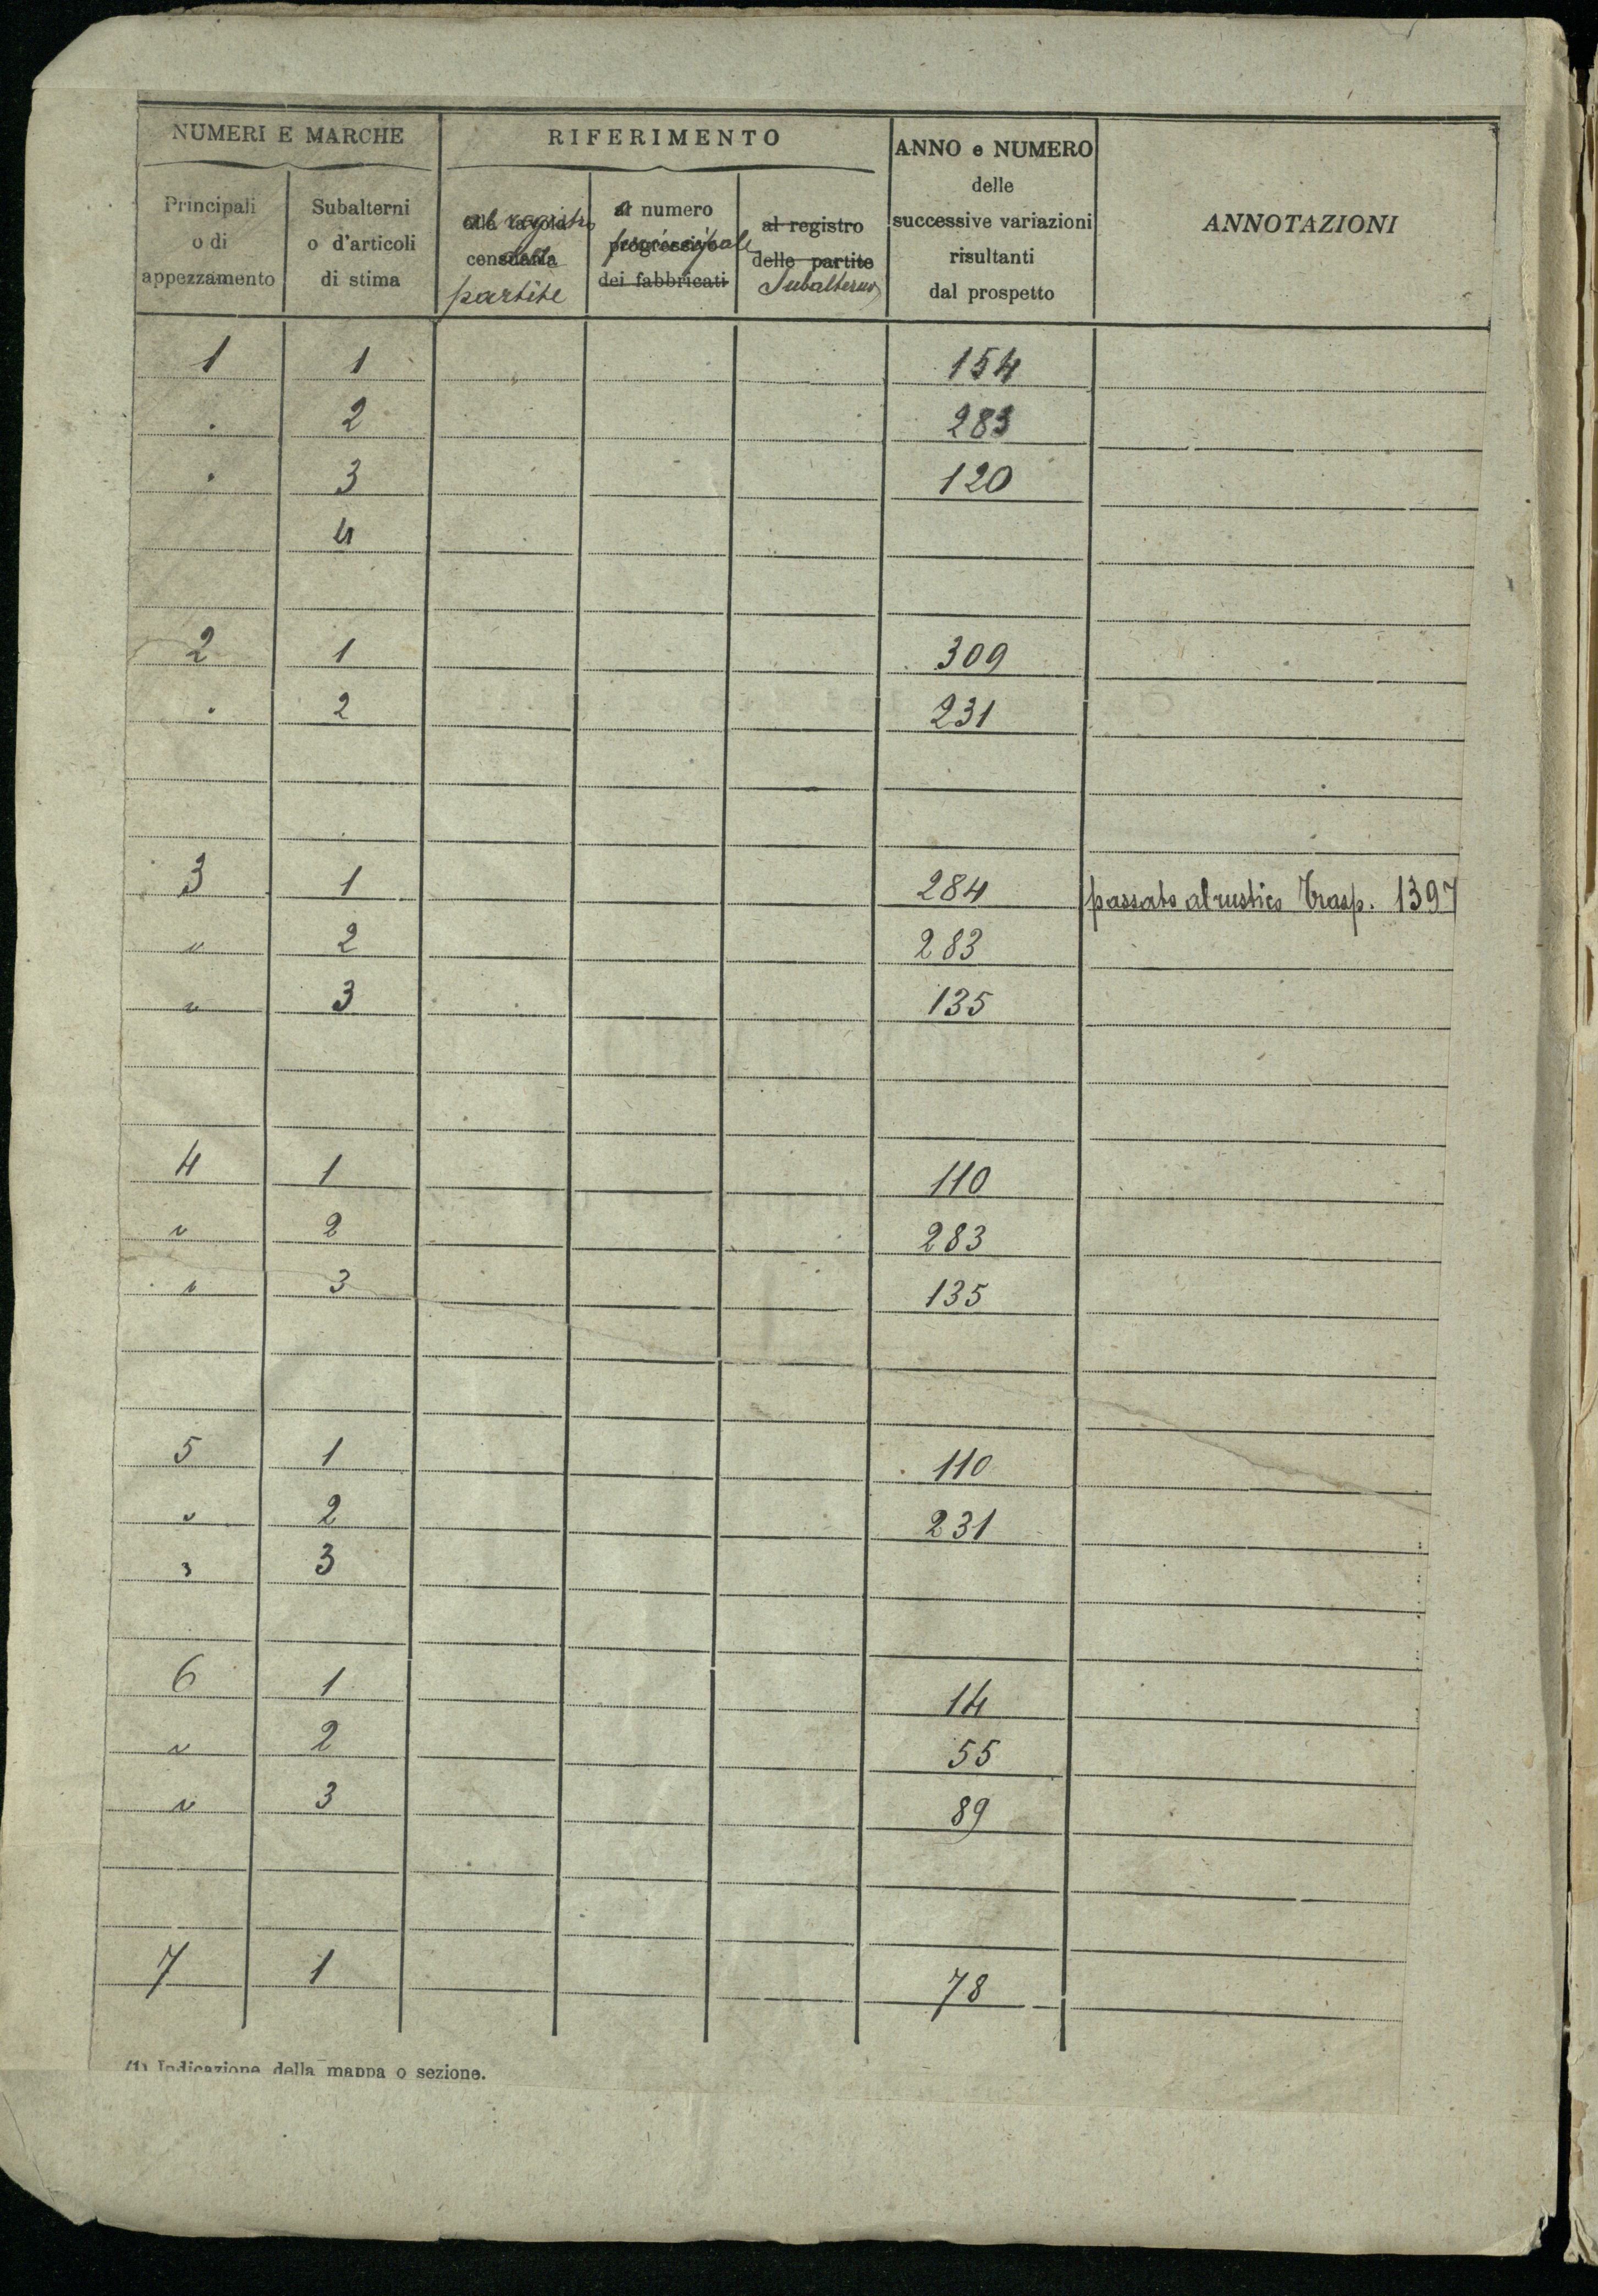 NUMERI E MARCHE RIFERIMENTO ANNO e NUMERO delle successive variazioni risultanti dal prospetto ANNOTAZIONI
Principali o di appezzamento Subalterni o d'articoli di stima al registro delle partite al numero principale Subalterno
al registro delle partite
progressivo dei fabbricati
1 1 154
. 2 283
. 3 120
4
2 1 309
. 2 231
3 1 284 passato al rustico Trasp. 1397
" 2 283
" 3 135
4 1 110
" 2 283
" 3 135
5 1 110
" 2 231
" 3
6 1 14
" 2 55
" 3 89
7 1 78
(1) Indicazione della mappa o sezione.